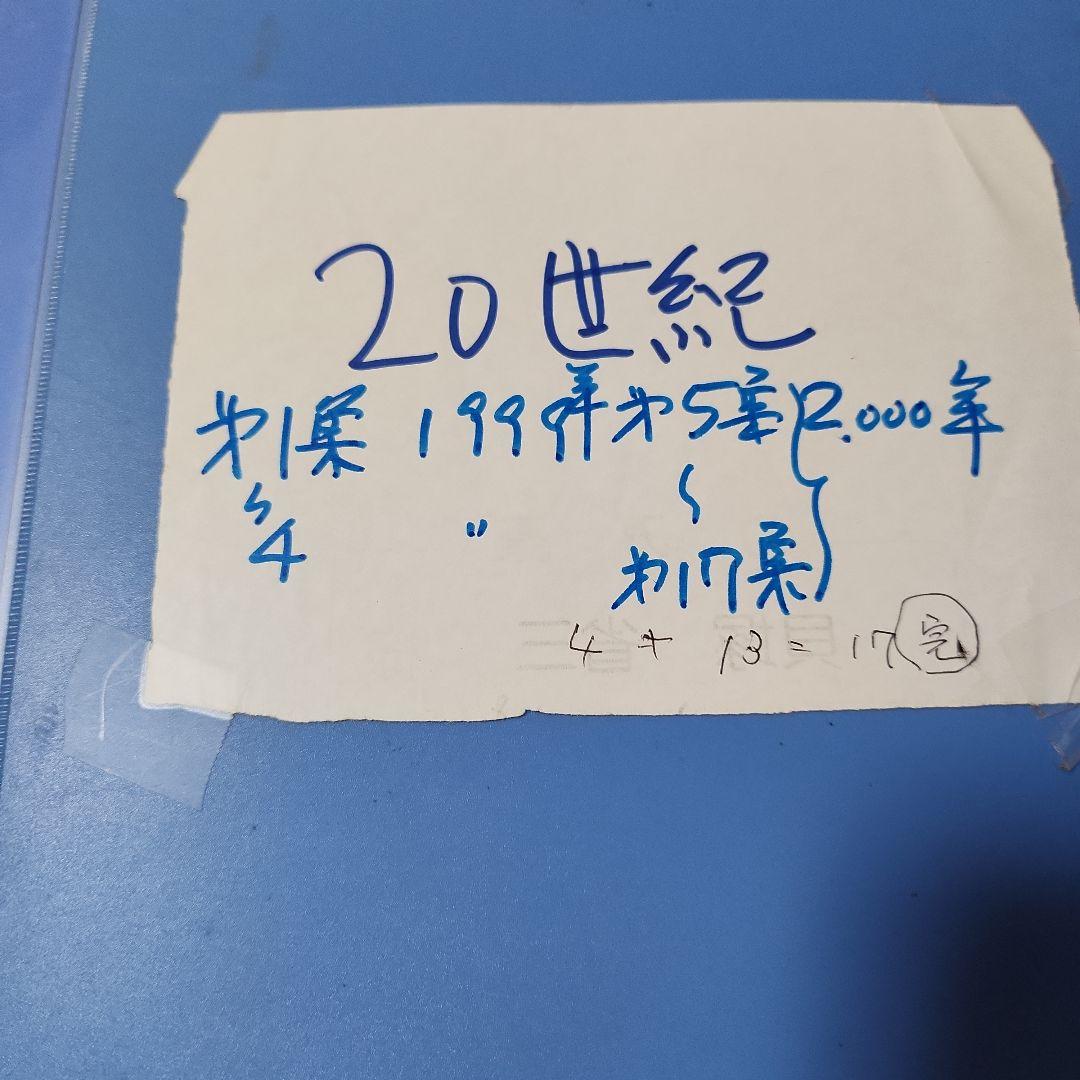 20世紀
第1集 1999年 第5集 2.000年
〜 〃 〜
4 第17集
4 + 13 = 17 完